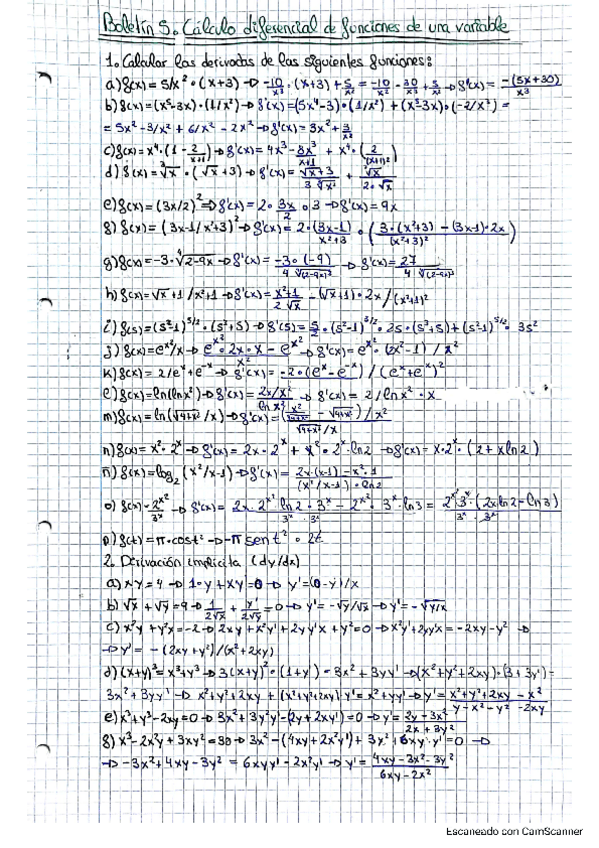 Boletín 5. Cálculo diferencial de funciones de una variable
1. Calcular las derivadas de las siguientes funciones:
a) f(x) = 5/x² · (x+3) → -10/x³ · (x+3) + 5/x² = -10/x² - 30/x³ + 5/x² → f'(x) = -(5x+30)/x³
b) f(x) = (x⁵-3x) · (1/x²) → f'(x) = (5x⁴-3) · (1/x²) + (x⁵-3x) · (-2/x³) =
= 5x² - 3/x² + 6/x² - 2x² → f'(x) = 3x² + 3/x²
c) f(x) = x⁴ · (1 - 2/x+1) → f'(x) = 4x³ - 8x³/x+1 + x⁴ · (2/(x+1)²)
d) f(x) = ∛x · (√x + 3) → f'(x) = √x+3 / 3∛x² + ∛x / 2·√x
e) f(x) = (3x/2)² → f'(x) = 2 · 3x/2 · 3 → f'(x) = 9x
f) f(x) = (3x-1/x²+3)² → f'(x) = 2 · (3x-1)/x²+3 · (3·(x²+3) - (3x-1)·2x / (x²+3)²)
g) f(x) = -3 · ∜2-9x → f'(x) = -3·(-9) / 4 ∜(2-9x)³ → f'(x) = 27 / 4 ∜(2-9x)³
h) f(x) = √x + 1/x²+1 → f'(x) = x²+1 / 2√x - (√x+1)·2x / (x²+1)²
i) f(s) = (s²-1)^5/2 · (s³+5) → f'(s) = 5/2 · (s²-1)^3/2 · 2s · (s³+5) + (s²-1)^5/2 · 3s²
j) f(x) = e^x²/x → e^x² · 2x · x - e^x² / x² → f'(x) = e^x² · (2x²-1) / x²
k) f(x) = 2/e^x + e^-x → f'(x) = -2·(e^x - e^-x) / (e^x + e^-x)²
l) f(x) = ln(ln x²) → f'(x) = 2x/x² / ln x² → f'(x) = 2/ln x² · x
m) f(x) = ln(√4+x² / x) → f'(x) = (x² / √4+x² - √4+x²) / x² / √4+x² / x
n) f(x) = x² · 2^x → f'(x) = 2x · 2^x + x² · 2^x · ln2 → f'(x) = x · 2^x · (2 + x ln2)
ñ) f(x) = log₂ (x²/x-1) → f'(x) = 2x·(x-1) - x²·1 / (x²/x-1) · ln2
o) f(x) = 2^x² / 3^x → f'(x) = 2x · 2^x² · ln2 · 3^x - 2^x² · 3^x · ln3 / 3^x · 3^x = 2^x² · 3^x · (2x ln2 - ln3) / 3^x · 3^x
p) f(t) = π · cos t² → -π sen t² · 2t
2. Derivación implícita (dy/dx)
a) xy = 4 → 1·y + xy' = 0 → y' = (0-y)/x
b) √x + √y = 9 → 1/2√x + y'/2√y = 0 → y' = -√y/√x → y' = -√y/x
c) x²y + y²x = -2 → 2xy + x²y' + 2yy'x + y² = 0 → x²y' + 2yy'x = -2xy - y² →
→ y' = -(2xy + y²)/(x² + 2xy)
d) (x+y)³ = x³+y³ → 3(x+y)² · (1+y') = 3x² + 3yy' → (x²+y²+2xy)·(3+3y') =
3x² + 3yy' → x²+y²+2xy + (x²+y²+2xy)·y' = x²+yy' → y' = x²+y²+2xy - x² / y-x²-y²-2xy
e) x³+y³-2xy = 0 → 3x² + 3y²y' - (2y + 2xy') = 0 → y' = 2y - 3x² / 2x + 3y²
f) x³-2x²y + 3xy² = 38 → 3x² - (4xy + 2x²y') + 3y² + 6xy·y' = 0 →
→ -3x² + 4xy - 3y² = 6xyy' - 2x²y' → y' = 4xy - 3x² - 3y² / 6xy - 2x²
Escaneado con CamScanner